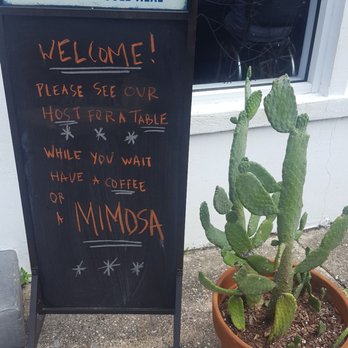 WELCOME!
PLEASE SEE OUR
HOST FOR A TABLE
WHILE YOU WAIT
HAVE A COFFEE
OR
A MIMOSA